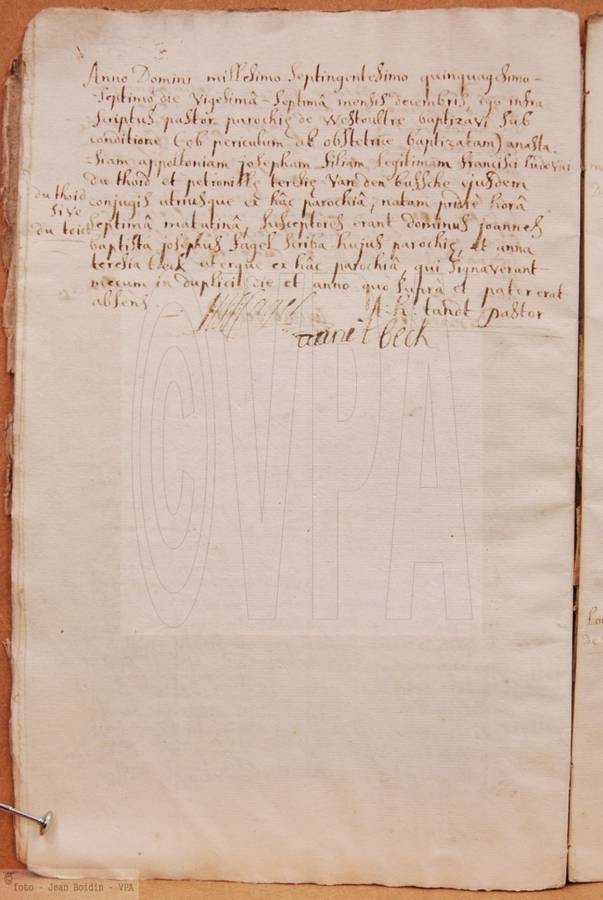 Anno Domini millesimo septingentesimo quinquagesimo-
-septimo, die vigesimâ-septimâ mensis decembris, ego infra
scriptus pastor parochię de westoultre baptizavi sub
conditione (ob periculum ab obstetrice baptizatam) anasta-
siam appolloniam josepham filiam legitimam francisci ludovici
du thoid et petronillę teresię vanden bussche ejusdem
du thoid
sive
du toict
conjugis utriusque ex hâc parochiâ, natam pridie horâ
septimâ matutinâ, susceptores erant dominus joannes
baptista josephus fagel scriba hujus parochię, et anna
teresia beck uterque ex hâc parochiâ, qui signaverunt
mecum in duplici die et anno quo suprà et pater erat
absens
tandt pastor
beck
©VPA
©foto - Jean Boidin - VPA